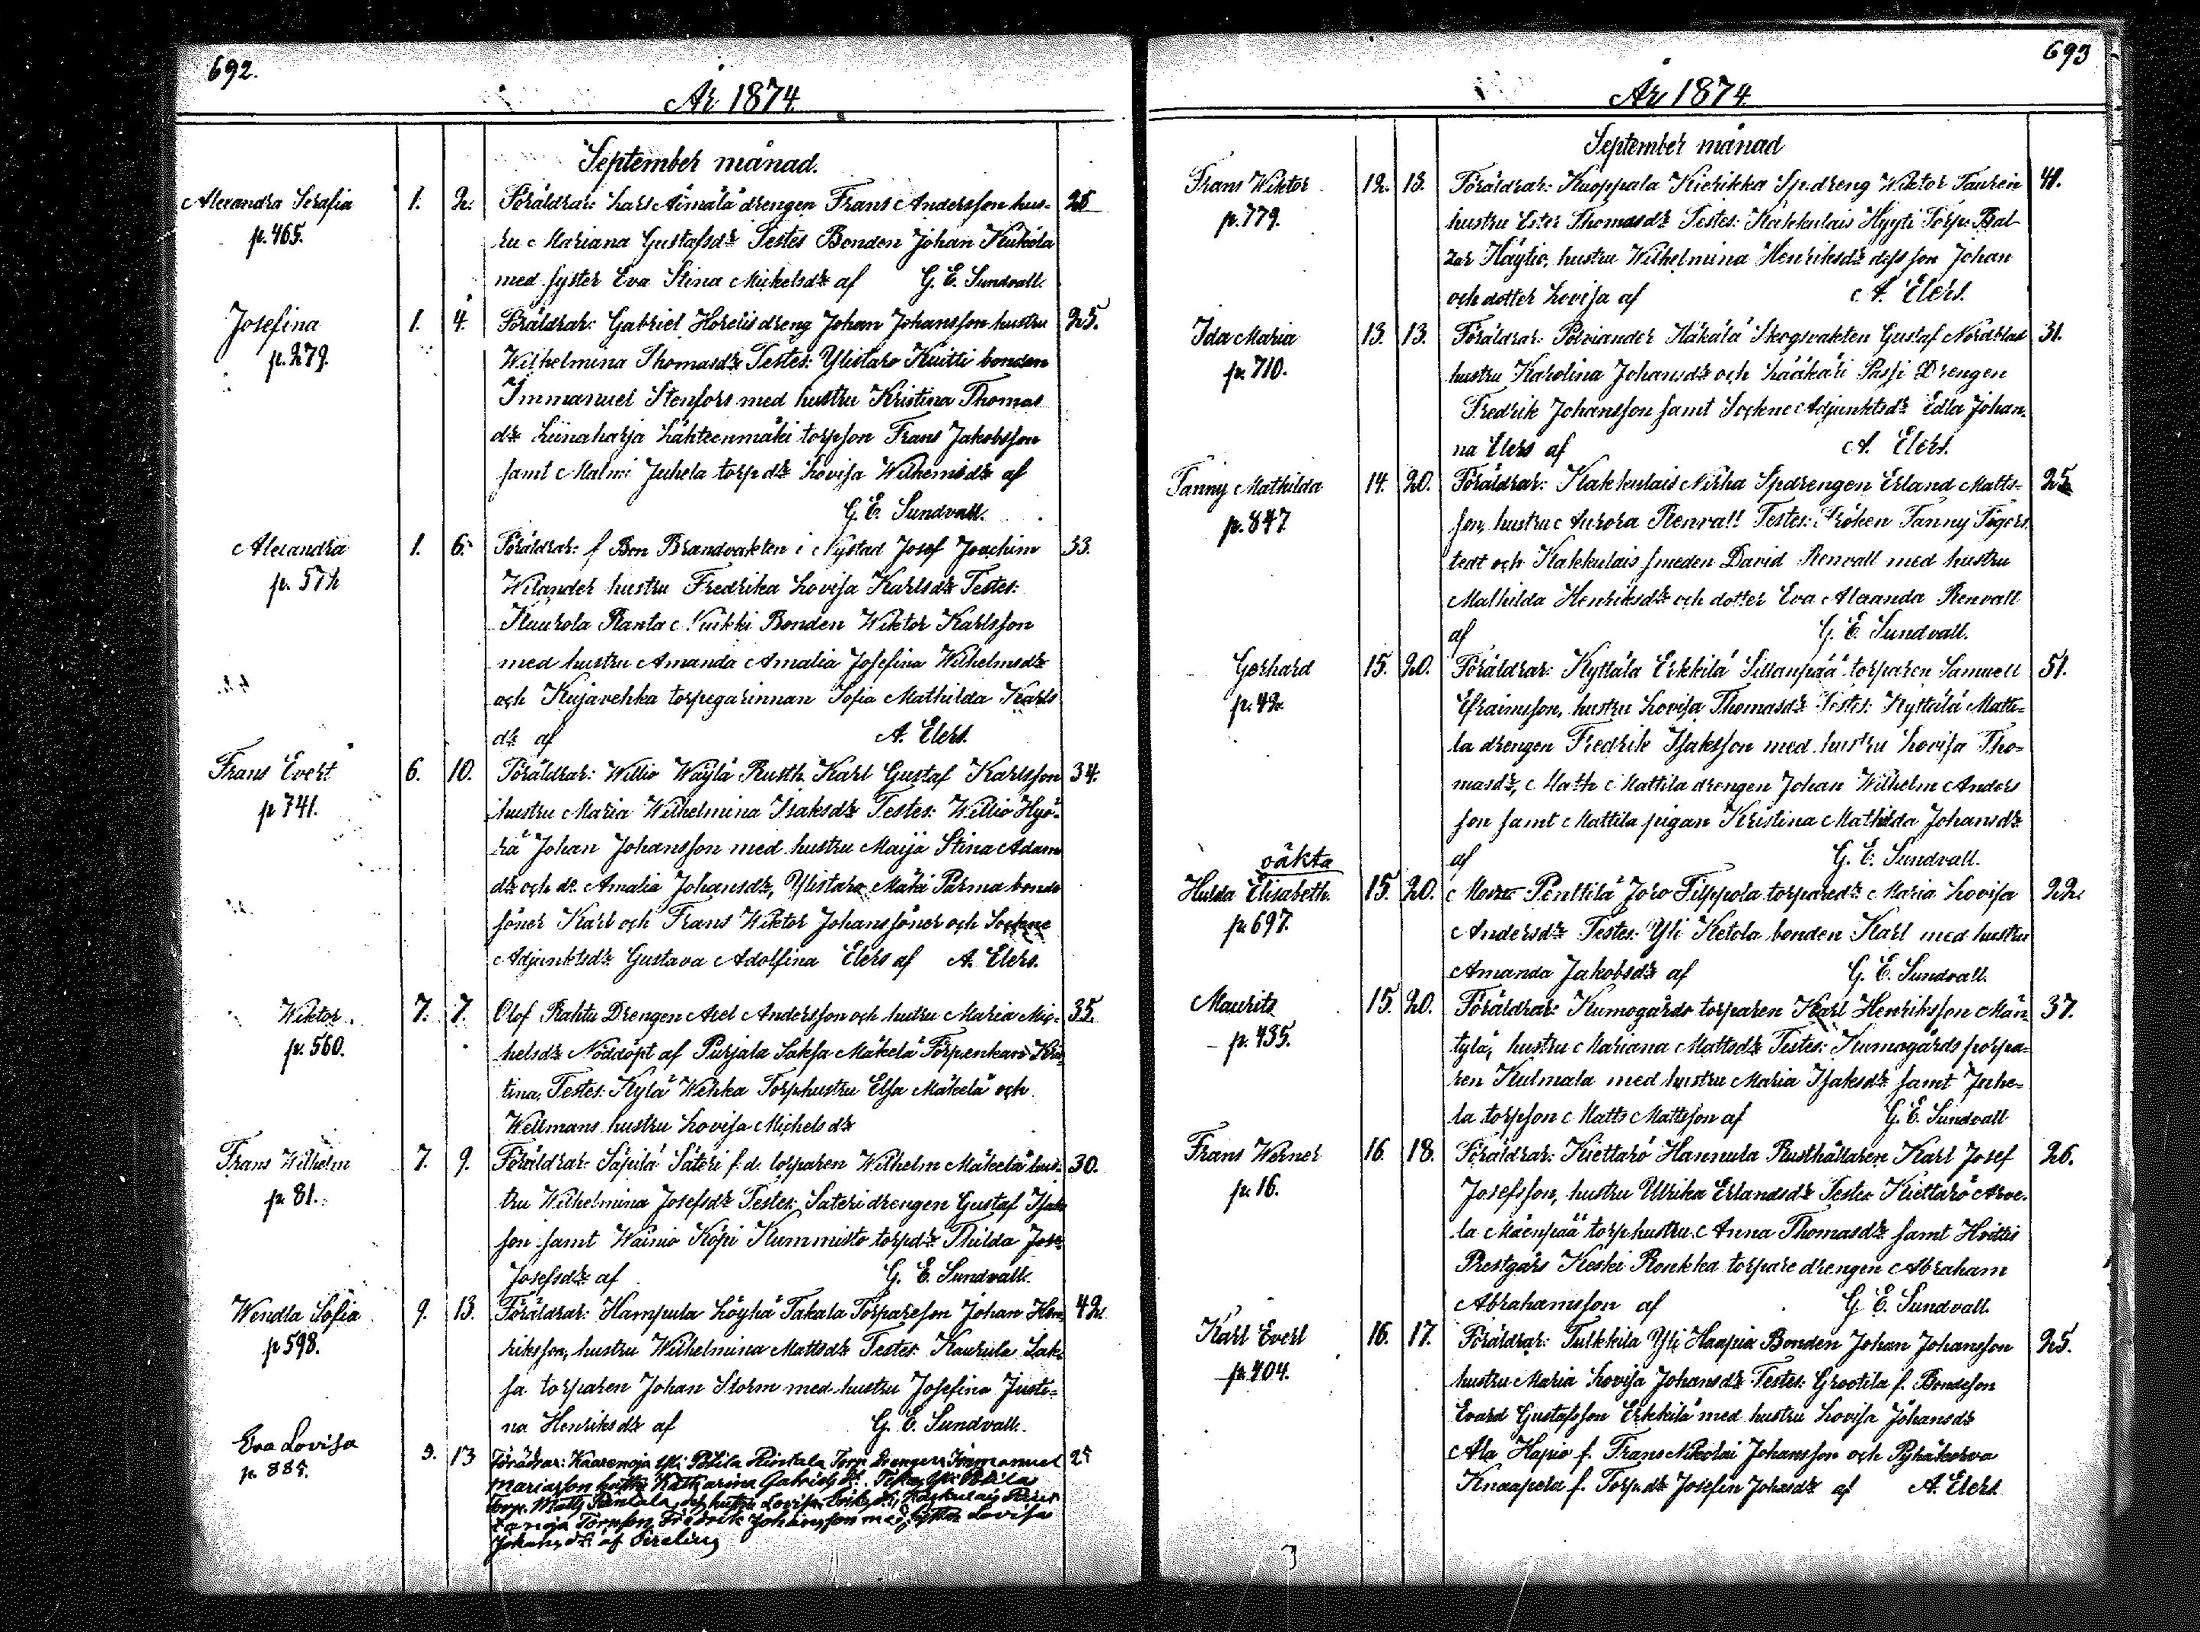 692.
År 1874
September månad.
Alexandra Serafia 1. 2. Föräldrar: Lars Äimälä drengen Frans Andersson hus- 25
p. 465. tru Mariana Gustafsdr Testes Bonden Johan Kukola
med syster Eva Stina Mickelsdr af G. E. Sundvall.
Josefina 1. 4. Föräldrar: Gabriel Horelis dreng Johan Johansson hustru 25.
p. 279. Wilhelmina Thomasdr Testes: Ylistaro Knitti bonden
Immanuel Stenfors med hustru Kristina Thomas
dr Liinaharja Lähteenmäki torpson Frans Jakobsson
samt Malmi Juhola torp.dr Lovisa Wilhemsdr af
G. E. Sundvall.
Alexandra 1. 6. Föräldrar: f Bon Brandvakten i Nystad Josef Joachim 33.
p. 572 Wilander hustru Fredrika Lovisa Karlsdr Testes:
Kaurola Ranta Bonden Wiktor Karlsson
med hustru Amanda Amalia Josefina Wilhelmsdr
och Kujavehka torpegarinnan Sofia Mathilda Karls
dr af A. Elers.
Frans Evert 6. 10. Föräldrar: Willio Wäylä Rusth. Karl Gustaf Karlsson 34.
p 741. hustru Maria Wilhelmina Isaksdr Testes: Willio Hyö-
rä Johan Johansson med hustru Maija Stina Adam
dr och dr Amalia Johansdr, Ylistaro Mäki Parma bonde
söner Karl och Frans Wiktor Johanssöner och Sockne
Adjunktsdr Gustava Adolfina Elers af A. Elers.
Wiktor 7. 7. Olof Rahtu Drengen Axel Andersson och hustru Maria Mic- 35.
p. 560. helsdr Nöddöpt af Purjala Saksa Mäkelä Torpenkan Kris
tina. Testes: Kylä Wehka Torphustru Elsa Mäkelä och
Wellmans hustru Lovisa Michelsdr
Frans Wilhelm 7. 9. Föräldrar: Säpilä Säteri f. d. torparen Wilhelm Mäkelä hus- 30.
p. 81. tru Wilhelmina Josefsdr Testes: Säteri drengen Gustaf Isak
son samt Wainio Köpi Kummisto torpdr Thilda Jose
Josefsdr af G. E. Sundvall.
Wendla Sofia 9. 13. Föräldrar: Hampula Löyhä Takala Torpareson Johan Hen 42.
p 598. riksson, hustru Wilhelmina Mattsdr Testes: Kaurula Sak-
sa torparen Johan Storm med hustru Josefina Justi-
na Henriksdr af G. E. Sundvall.
Eva Lovisa 9. 13 Föräldrar: Kaarenoja Yli Pitila Rintala Torp. Drengen Immanuel 25
p. 885. Mariasson hustru Katharina Gabrielsdr Testes: Yli Pitila
Torp. Matts Rintala och hustru Lovisa Eriksdr, Kakkulais
Torpson Fredrik Johansson med syster Lovisa
Johansdr af Sirelius
693
År 1874
September månad
Frans Wiktor 12. 13. Föräldrar: Kuoppala Kierikka Sp.dreng Wiktor Tauren 41.
p. 779. hustru Ester Thomasdr Testes: Kakkulais Hyyti Torp. Bal-
zar Häytiö, hustru Wilhelmina Henriksdr dess son Johan
och dotter Lovisa af A. Elers.
Ida Maria 13. 13. Föräldrar: Polviander Käkälä Skogsvakten Gustaf Nordblad 31.
p. 710. hustru Karolina Johansdr och Lääkäri Passi Drengen
Fredrik Johansson samt Sockne Adjunktsdr Edla Johan-
na Elers af A. Elers.
Fanny Mathilda 14. 20. Föräldrar: Kakkulais Nirha Spdrengen Erland Matts- 25.
p. 847 son, hustru Aurora Renvall Testes: Fröken Fanny Fogers
tedt och Kakkulais smeden David Renvall med hustru
Mathilda Henriksdr och dotter Eva Alexanda Renvall
af G. E. Sundvall.
Gerhard 15. 20. Föräldrar: Kyttälä Erkkilä Sillanpää torparen Samuell 51.
p. 42. Efraimsson, hustru Lovisa Thomasdr Testes: Kyttälä Matti-
la drengen Fredrik Isaksson med hustru Lovisa Tho-
masdr, Math Mattila drengen Johan Wilhelm Anders
son samt Mattila pigan Kristina Mathilda Johansdr
af G. E. Sundvall.
oäkta
Hulda Elisabeth. 15. 20. Penttilä Joro Filppola torparedr Maria Lovisa 22.
p. 697. Andersdr Testes: Yli Ketola bonden Karl med hustru
Amanda Jakobsdr af G. E. Sundvall.
Maurits 15. 20. Föräldrar: Kumogårds torparen Karl Henriksson Män- 37.
p. 435. tylä, hustru Mariana Mattsdr Testes: Kumogårds torpa-
ren Kulmala med hustru Maria Isaksdr samt Juho-
la torpson Matts Mattsson af G. E. Sundvall
Frans Werner 16. 18. Föräldrar: Kiettarö Hannula Rusthållaren Karl Josef 26.
p. 16. Josefsson, hustru Ulrika Erlandsdr Testes Kiettarö Arve-
la Mäenpää torphustru Anna Thomasdr samt Hvittis
Prestgårs Keski Ronkka torpare drengen Abraham
Abrahamsson af G. E. Sundvall.
Karl Evert 16. 17. Föräldrar: Tulkkila Yli Haapia Bonden Johan Johansson 25.
p. 404. hustru Maria Lovisa Johansdr Testes: Grootila f. Bondeson
Evard Gustafsson Erkkilä med hustru Lovisa Johansdr
Ala Hapio f. Frans Nikolai Johansson och Pyhäkorva
Knaapola f. Torpdr Josefin Johsdr af A. Elers